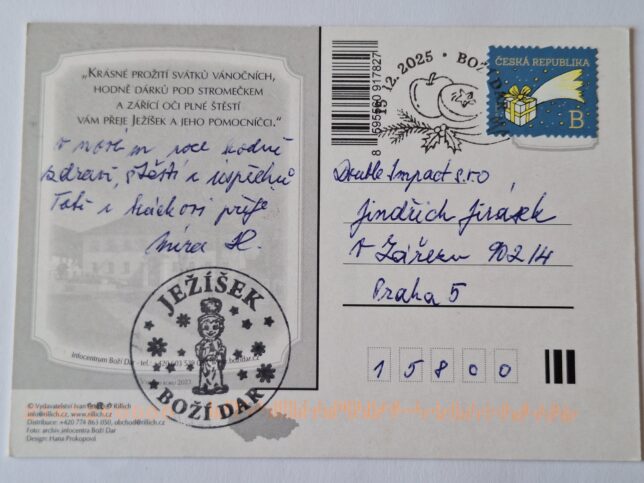 „Krásné prožití svátků vánočních,
hodně dárků pod stromečkem
a zářící oči plné štěstí
vám přeje Ježíšek a jeho pomocníčci.“
v novém roce hodně
zdraví, štěstí i úspěchů
Totě i
přeje
Míra H.
JEŽÍŠEK
BOŽÍ DAR
Infocentrum Boží Dar - tel.: +420
© Vydavatelství Ivan Rillich
info@rillich.cz, www.rillich.cz
Distribuce: +420 774 863 050, obchod@rillich.cz
Foto: archiv infocentra Boží Dar
Design: Hana Prokopová
8 595560 917827
15.12.2025 • BOŽÍ DAR
ČESKÁ REPUBLIKA
B
Double Impact s.r.o
Jindřich Jirásek
V Zářezu 902/4
Praha 5
15800